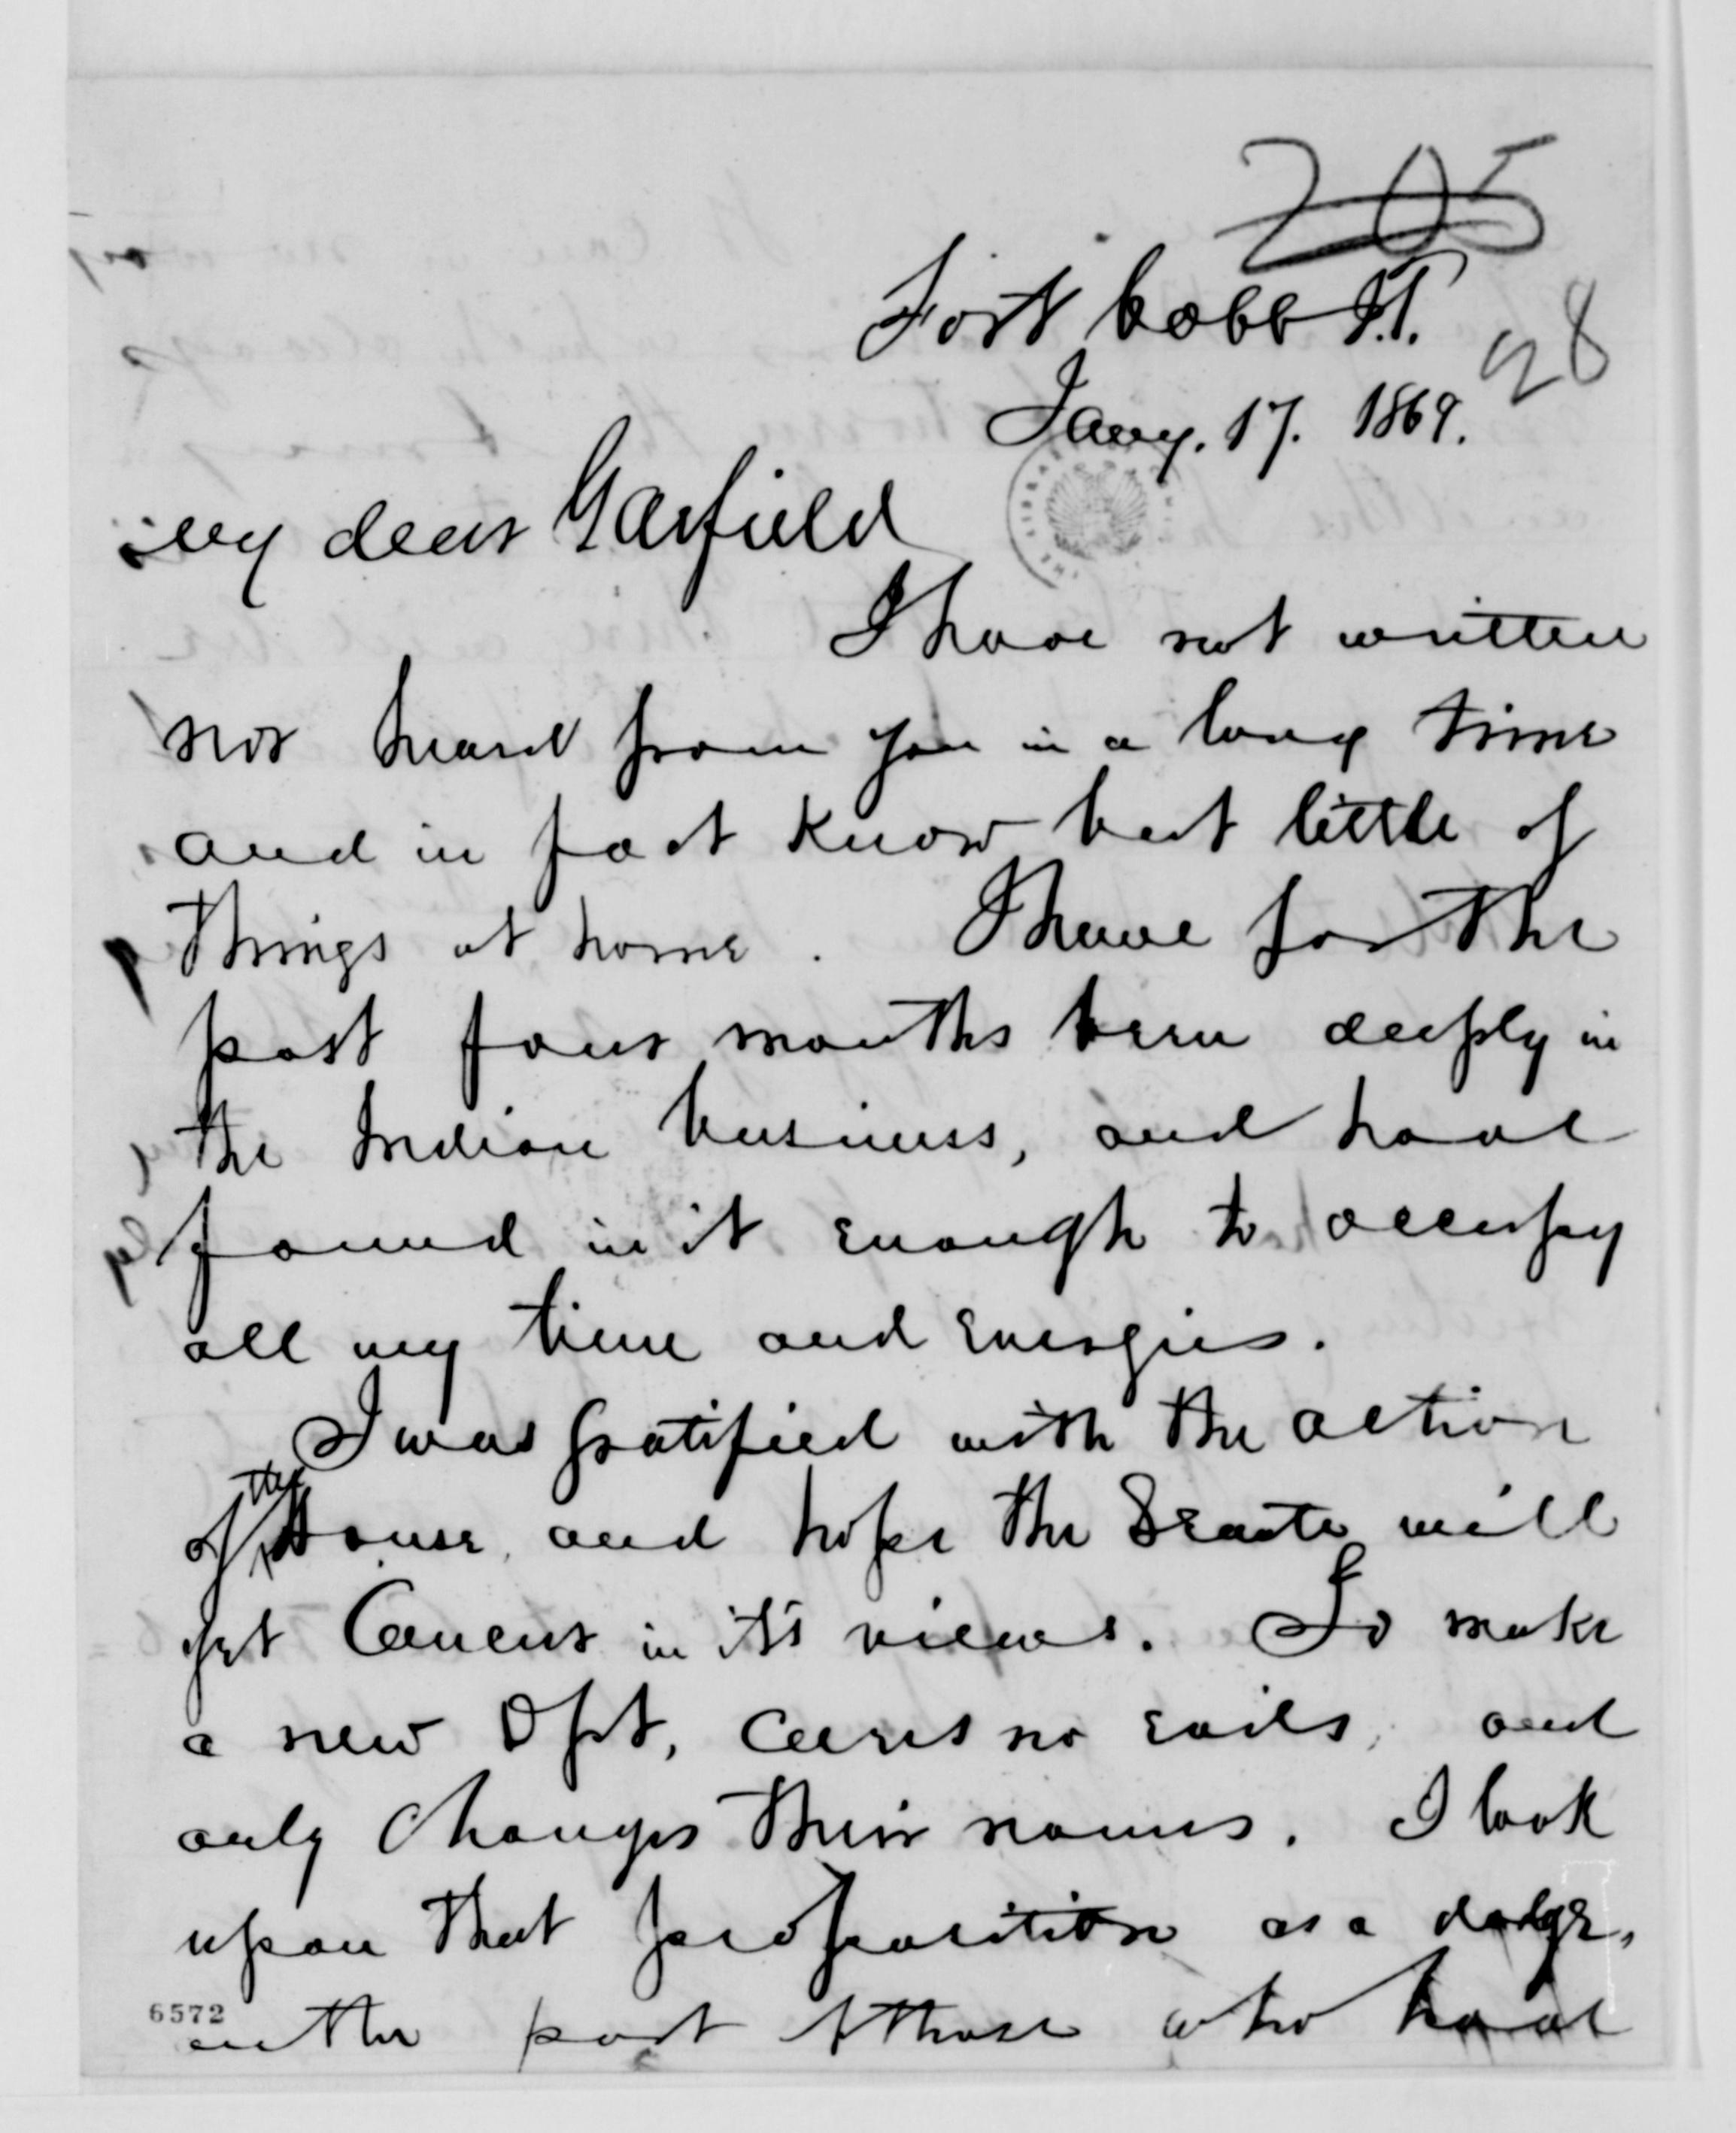 205
Fort Cobb I.T.
28
Jany. 17. 1869.
My dear Garfield
I have not written
nor heard from you in a long time
and in fact know but little of
things at home. I have for the
past four months been deeply in
the Indian business, and have
found in it enough to occupy
all my time and energies.
I was gratified with the action
of the House, and hope the Senate will
yet Concur in its views. To make
a new Dpt, cures no evils, and
only Changes their names. I look
upon that proposition as a dodge,
6572
on the part of those who have